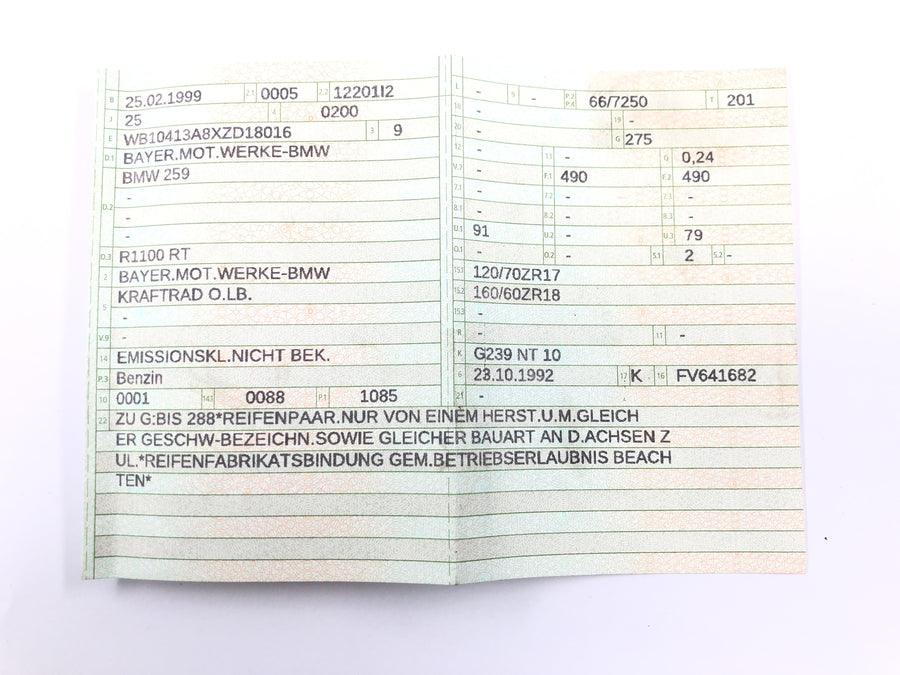 B 25.02.1999 2.1 0005 2.2 12201I2
J 25 4 0200
E WB10413A8XZD18016 3 9
D.1 BAYER.MOT.WERKE-BMW
BMW 259
-
D.2 -
-
D.3 R1100 RT
2 BAYER.MOT.WERKE-BMW
5 KRAFTRAD O.LB.
-
V.9 -
14 EMISSIONSKL.NICHT BEK.
P.3 Benzin
10 0001 14.1 0088 P.1 1085
L - 9 - P.2 P.4 66/7250 T 201
18 - 19 -
20 - G 275
12 - 13 - Q 0,24
V.7 - F.1 490 F.2 490
7.1 - 7.2 - 7.3 -
8.1 - 8.2 - 8.3 -
U.1 91 U.2 - U.3 79
O.1 - O.2 - S.1 2 S.2 -
15.1 120/70ZR17
15.2 160/60ZR18
15.3 -
R - 11 -
K G239 NT 10
6 23.10.1992 17 K 16 FV641682
21 -
22 ZU G:BIS 288*REIFENPAAR.NUR VON EINEM HERST.U.M.GLEICH
ER GESCHW-BEZEICHN.SOWIE GLEICHER BAUART AN D.ACHSEN Z
UL.*REIFENFABRIKATSBINDUNG GEM.BETRIEBSERLAUBNIS BEACH
TEN*